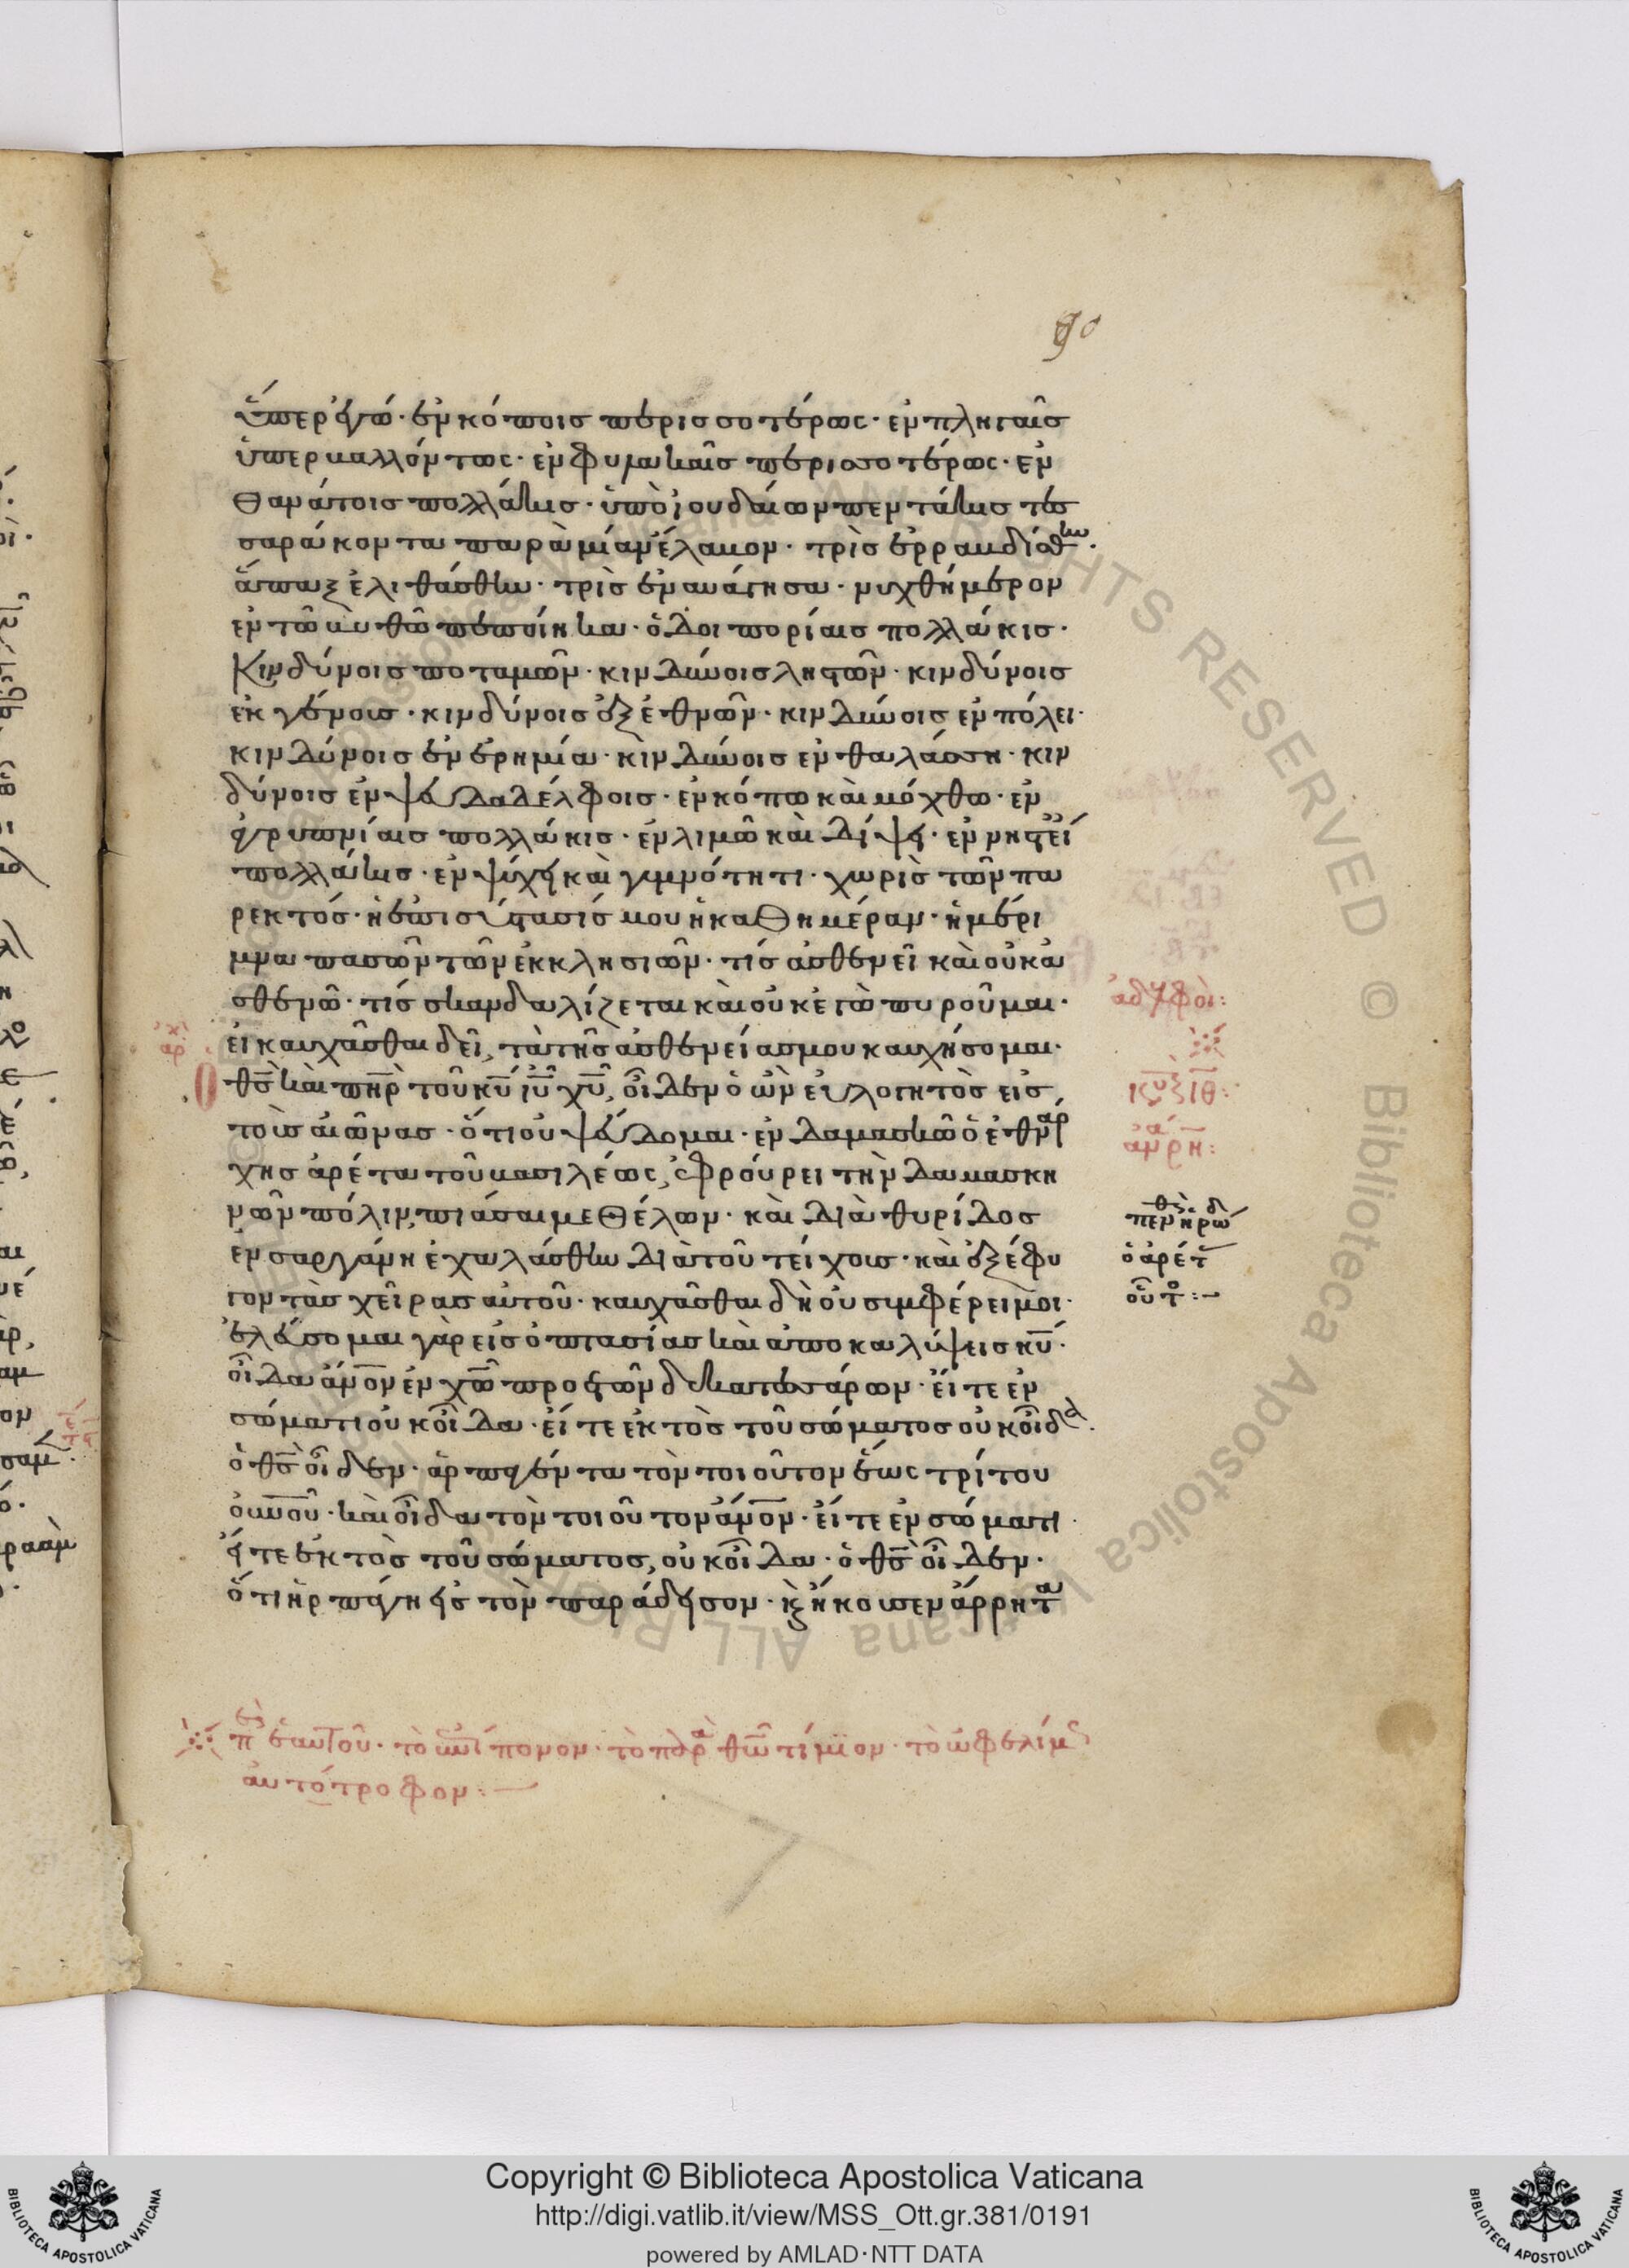 90
ὑπὲρ ἐγώ· ἐν κόποις περισσοτέρως· ἐν πληγαῖς
ὑπερβαλλόντως· ἐν φυλακαῖς περισσοτέρως· ἐν
θανάτοις πολλάκις· ὑπὸ ἰουδαίων πεντάκις τεσ
σαράκοντα παρὰ μίαν ἔλαβον· τρὶς ἐρραβδίσθην·
ἅπαξ ἐλιθάσθην· τρὶς ἐναυάγησα· νυχθήμερον
ἐν τῶ βυθῶ πεποίηκα· ὁδοιπορίαις πολλάκις·
κινδύνοις ποταμῶν· κινδύνοις ληστῶν· κινδύνοις
ἐκ γένους· κινδύνοις ἐξ ἐθνῶν· κινδύνοις ἐν πόλει·
κινδύνοις ἐν ἐρημία· κινδύνοις ἐν θαλάσση· κιν
δύνοις ἐν ψευδαδέλφοις· ἐν κόπω καὶ μόχθω· ἐν
ἀγρυπνίαις πολλάκις· ἐν λιμῶ καὶ δίψει· ἐν νηστεί
πολλάκις· ἐν ψύχει καὶ γυμνότητι· χωρὶς τῶν πα
ρεκτός· ἡ ἐπισύστασίς μου ἡ καθημέραν· ἡ μέρι
μνα πασῶν τῶν ἐκκλησιῶν· τίς ἀσθενεῖ καὶ οὐκ ἀ
σθενῶ· τίς σκανδαλίζεται καὶ οὐκ ἐγὼ πυροῦμαι·
εἰ καυχᾶσθαι δεῖ, τὰ τῆς ἀσθενείας μου καυχήσομαι·
ὁ θς καὶ πηρ τοῦ κυ ιυ χυ, οἶδεν ὁ ὢν εὐλογητὸς εἰς
τοὺς αἰῶνας· ὅτι οὐ ψεύδομαι· ἐν δαμασκῶ ὁ ἐθνάρ
χης ἀρέτα τοῦ βασιλέως, ἐφρούρει τὴν δαμασκη
νῶν πόλιν, πιάσαι με θέλων· καὶ διὰ θυρίδος
ἐν σαργάνη ἐχαλάσθην διὰ τοῦ τείχους· καὶ ἐξέφυ
γον τὰς χεῖρας αὐτοῦ· καυχᾶσθαι δὴ οὐ συμφέρει μοι·
ἐλεύσομαι γὰρ εἰς ὀπτασίας καὶ ἀποκαλύψεις κυ·
οἶδα ανον ἐν χω πρὸ ἐτῶν δεκατεσσάρων· εἴτε ἐν
σώματι οὐκ οἶδα· εἴτε ἐκτὸς τοῦ σώματος οὐκ οἶδα·
ὁ θς οἶδεν· ἁρπαγέντα τὸν τοιοῦτον ἕως τρίτου
ουνου· καὶ οἶδα τὸν τοιοῦτον ανον· εἴτε ἐν σώματι·
εἴτε ἐκτὸς τοῦ σώματος, οὐκ οἶδα· ὁ θς οἶδεν·
ὅτι ἡρπάγη εἰς τὸν παράδεισον· κ ἤκουσεν ἄρρητα
ἀρχ
ἀδελφοί:
πενθερὸς δ
ἡρώδ
ὁ ἀρέτ
οὗτος :—
αὐτότροφον :—
Copyright © Biblioteca Apostolica Vaticana
http://digi.vatlib.it/view/MSS_Ott.gr.381/0191
powered by AMLAD·NTT DATA
BIBLIOTECA APOSTOLICA VATICANA
BIBLIOTECA APOSTOLICA VATICANA